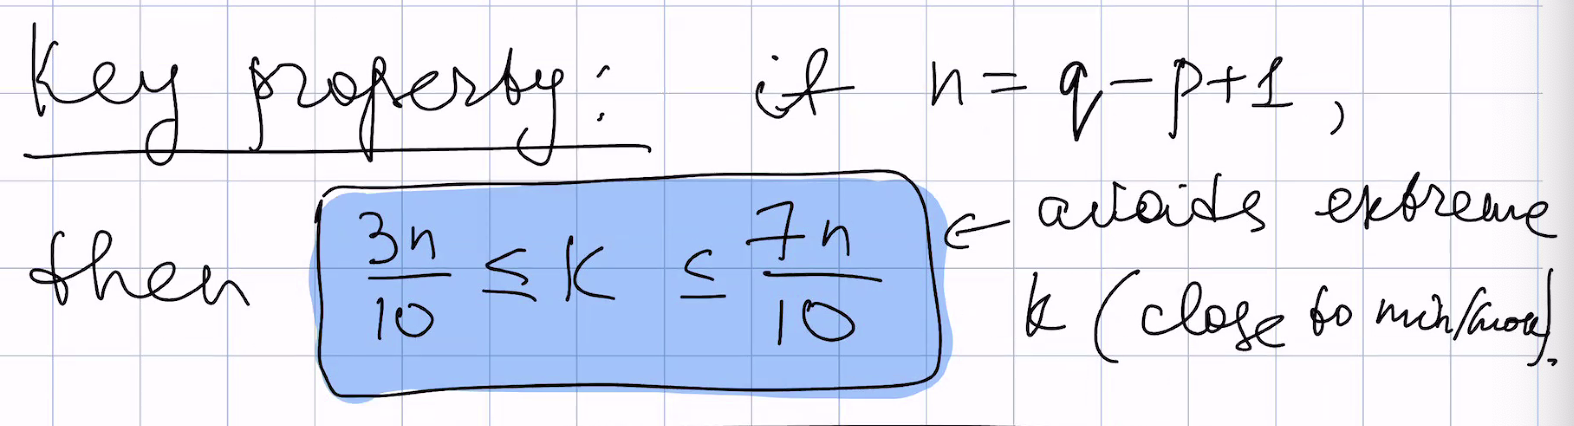 Key property: if n = q-p+1,
then 3n/10 ≤ k ≤ 7n/10 ← avoids extreme
k (close to min/max).